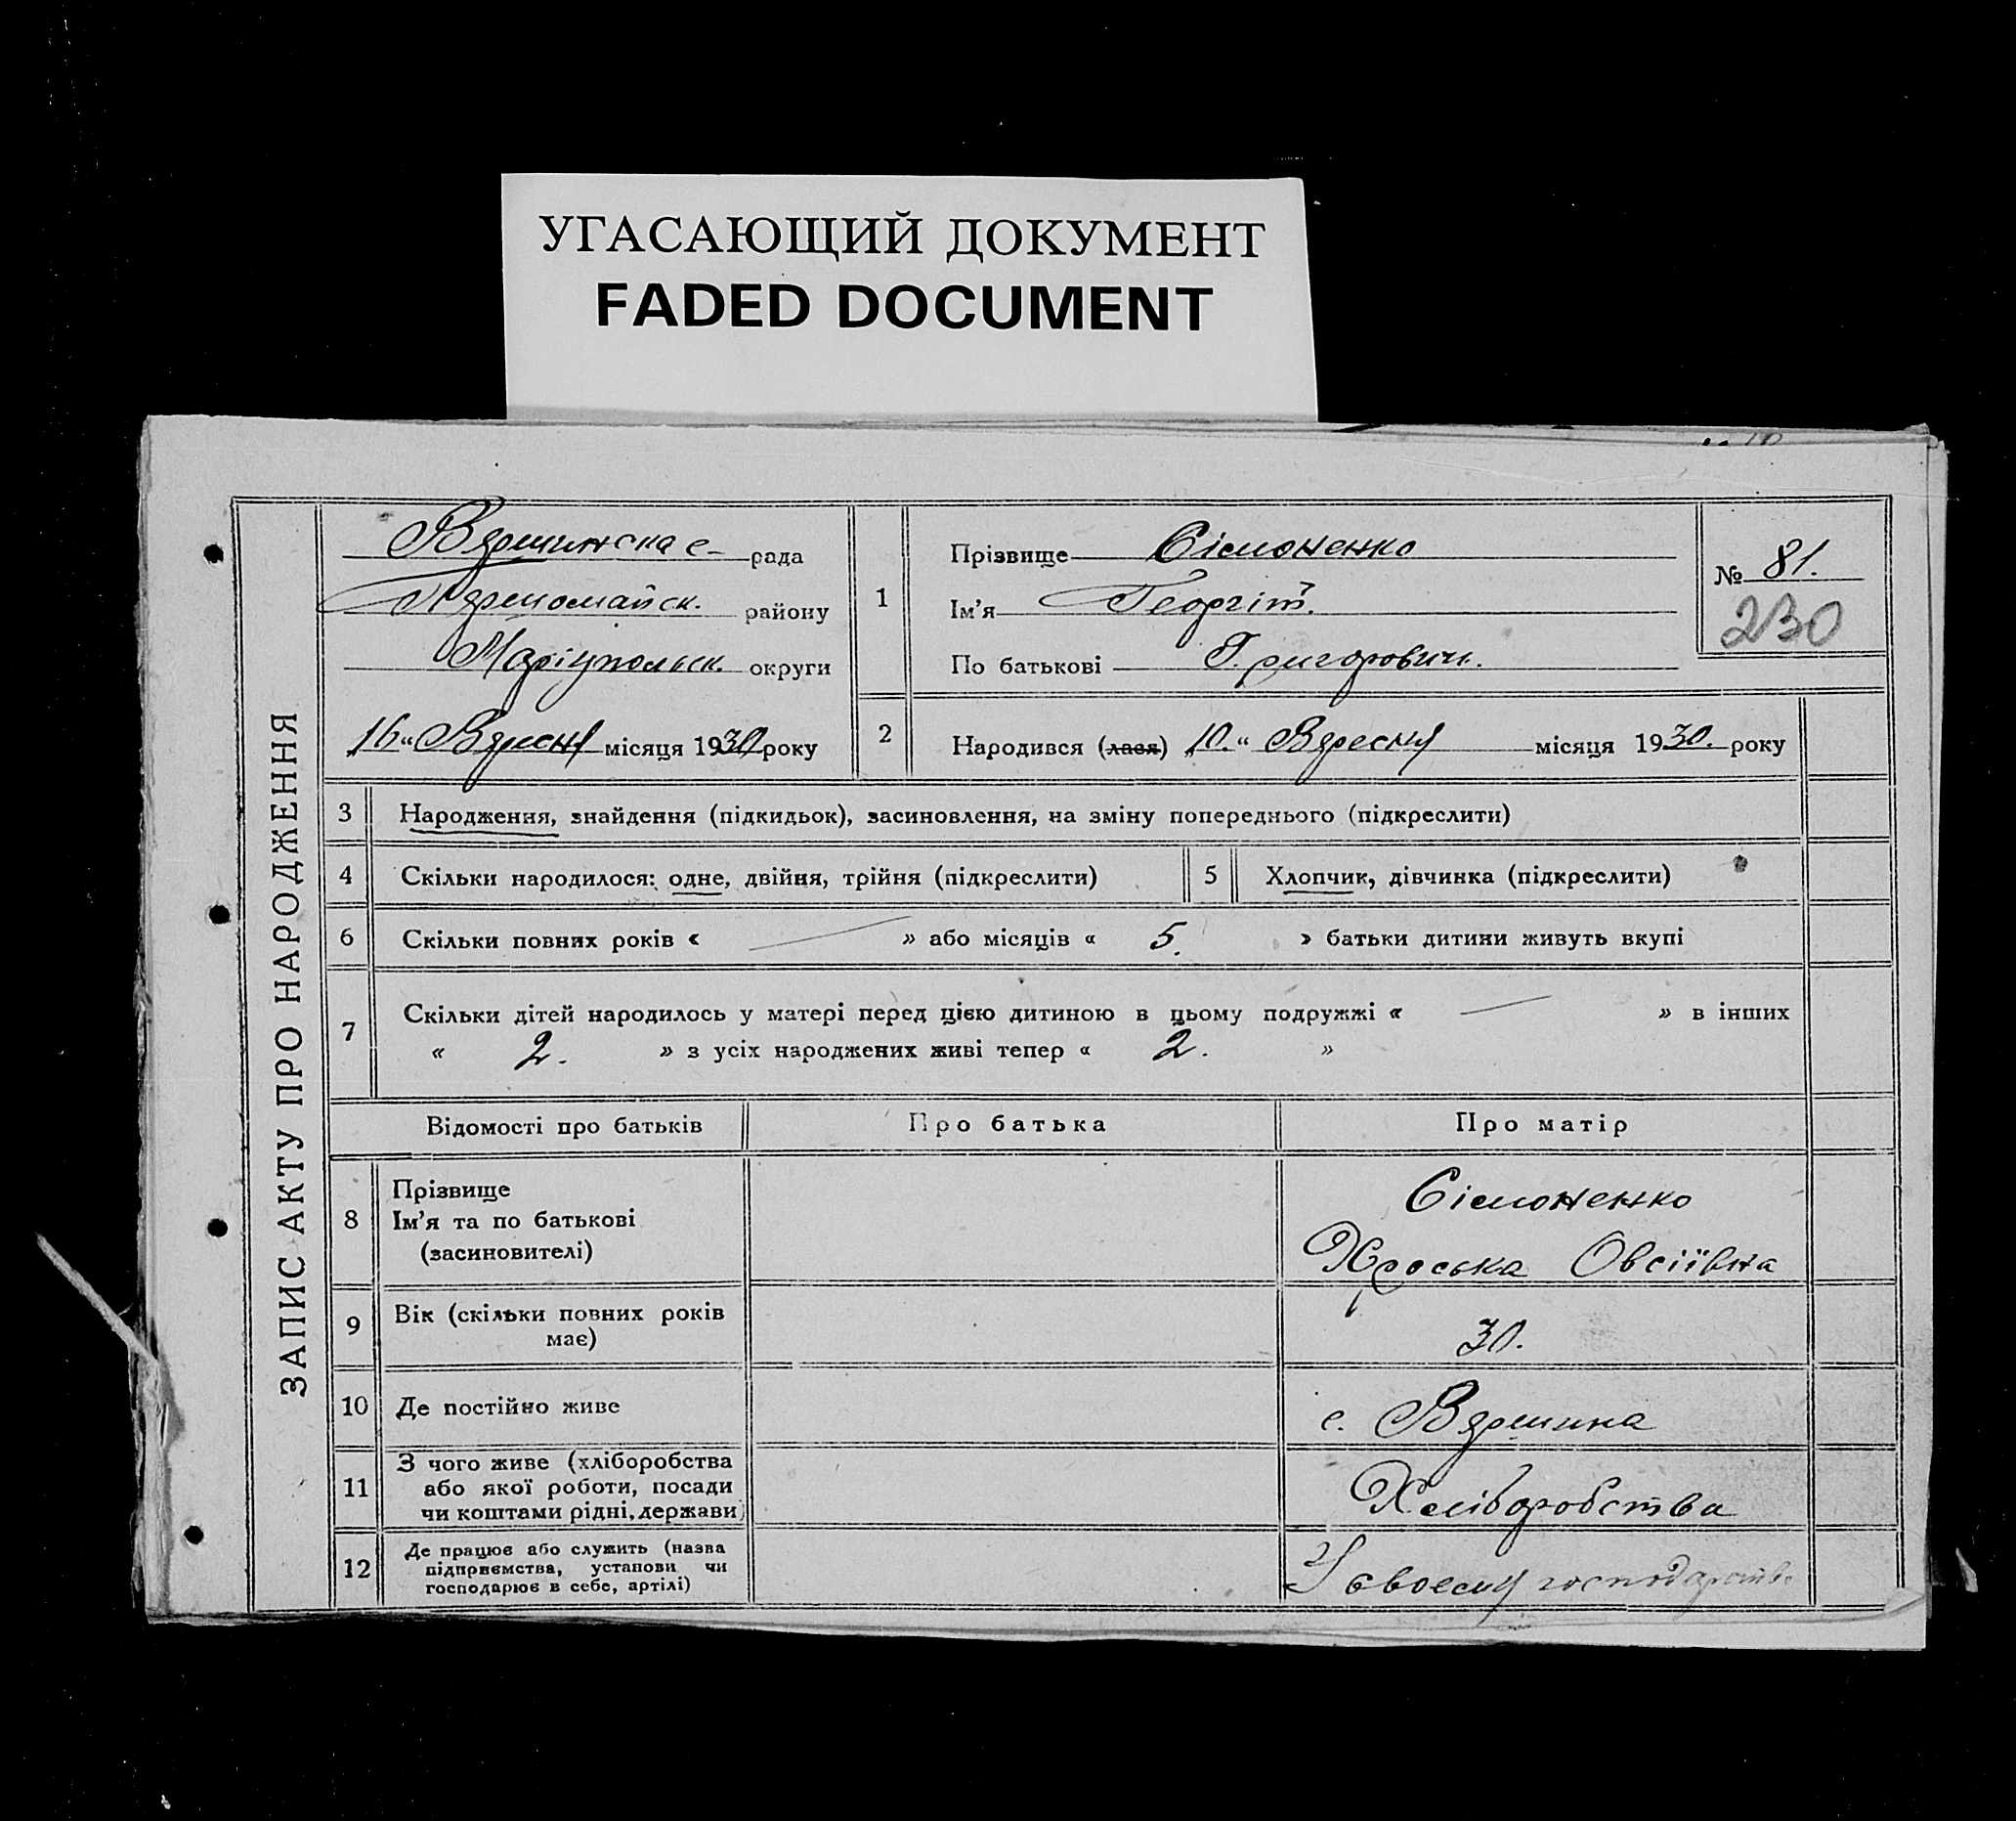 УГАСАЮЩИЙ ДОКУМЕНТ
FADED DOCUMENT
ЗАПИС АКТУ ПРО НАРОДЖЕННЯ
с. рада
району
Маріупольск. округи
16 " Вересня місяця 1930 року
1
Прізвище Сімоненко
Ім'я Георгій.
По батькові Григорович.
№ 81.
230
2 Народився (лася) 10. " Вересня місяця 1930. року
3 Народження, знайдення (підкидьок), засиновлення, на зміну попереднього (підкреслити)
4 Скільки народилося: одне, двійня, трійня (підкреслити) 5 Хлопчик, дівчинка (підкреслити)
6 Скільки повних років « — » або місяців « 5. » батьки дитини живуть вкупі
7 Скільки дітей народилось у матері перед цією дитиною в цьому подружжі « — » в інших
« 2. » з усіх народжених живі тепер « 2. »
Відомості про батьків Про батька Про матір
8 Прізвище
Ім'я та по батькові
(засиновителі)
Сімоненко
Хроська Овсіївна
9 Вік (скільки повних років
має)
30.
10 Де постійно живе
с.
11 З чого живе (хліборобства
або якої роботи, посади
чи коштами рідні, держави)
Хліборобства
12 Де працює або служить (назва
підприємства, установи чи
господарює в себе, артілі)
У своему господарстві